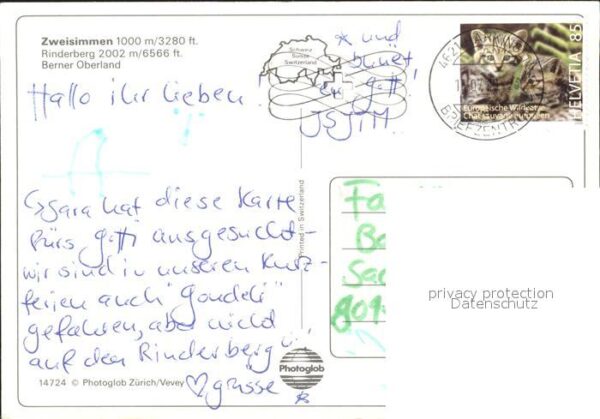 Zweisimmen 1000 m/3280 ft.
Rinderberg 2002 m/6566 ft.
Berner Oberland
Hallo ihr lieben!
Sara hat diese Karte
fürs gotti ausgesucht -
wir sind in unseren Kurz-
ferien auch "gondeli"
gefahren, aber nicht
auf den Rinderberg
grüsse
* und
Schweiz
Suisse
Switzerland
HELVETIA 85
Europäische Wildkatze
Chat sauvage européen
BRIEFZENTRUM
Printed in Switzerland
Fa
Ba
Sa
809
privacy protection
Datenschutz
Photoglob
14724 © Photoglob Zürich/Vevey